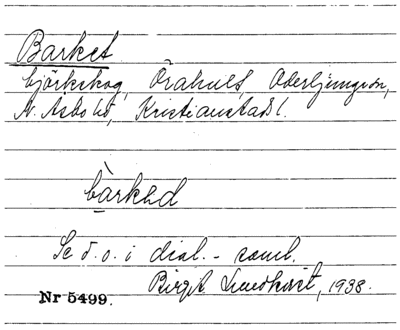 Barket
björkskog, Örahult, Oderljunga sn,
N. Åsbo hd, Kristianstads l.
bàrkəd
Se d. o. i dial.- saml.
Birgit Lundkvist, 1938.
Nr 5499.